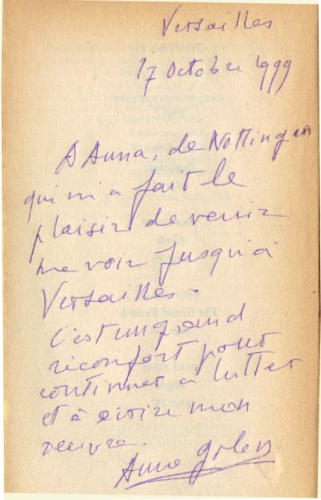 Versailles
17 Octobre 1999
A Anna, de Nottingen
qui m'a fait le
plaisir de venir
me voir jusqu'à
Versailles.
C'est un grand
réconfort pour
continuer à lutter
et à écrire mon
oeuvre.
Anne Golon